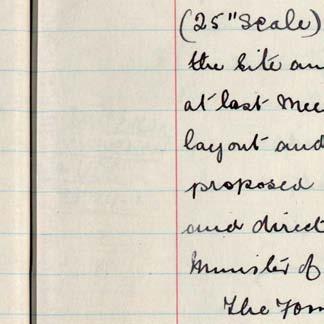 (25" Scale)
the site an
at last Mee
layout and
proposed
and direct
Minister of
The Tow